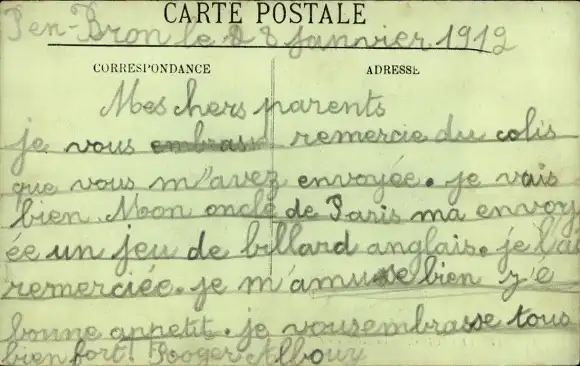 CARTE POSTALE
Pen-Bron le 28 janvier 1912
CORRESPONDANCE
ADRESSE
Mes chers parents
je vous embrass remercie du colis
que vous m'avez envoyée. je vais
bien. Mon oncle de Paris ma envoy
ée un jeu de billard anglais. je l'ai
remerciée. je m'amuse bien j'é
bonne appetit. je vous embrasse tous
bien fort! Rooger Albouy